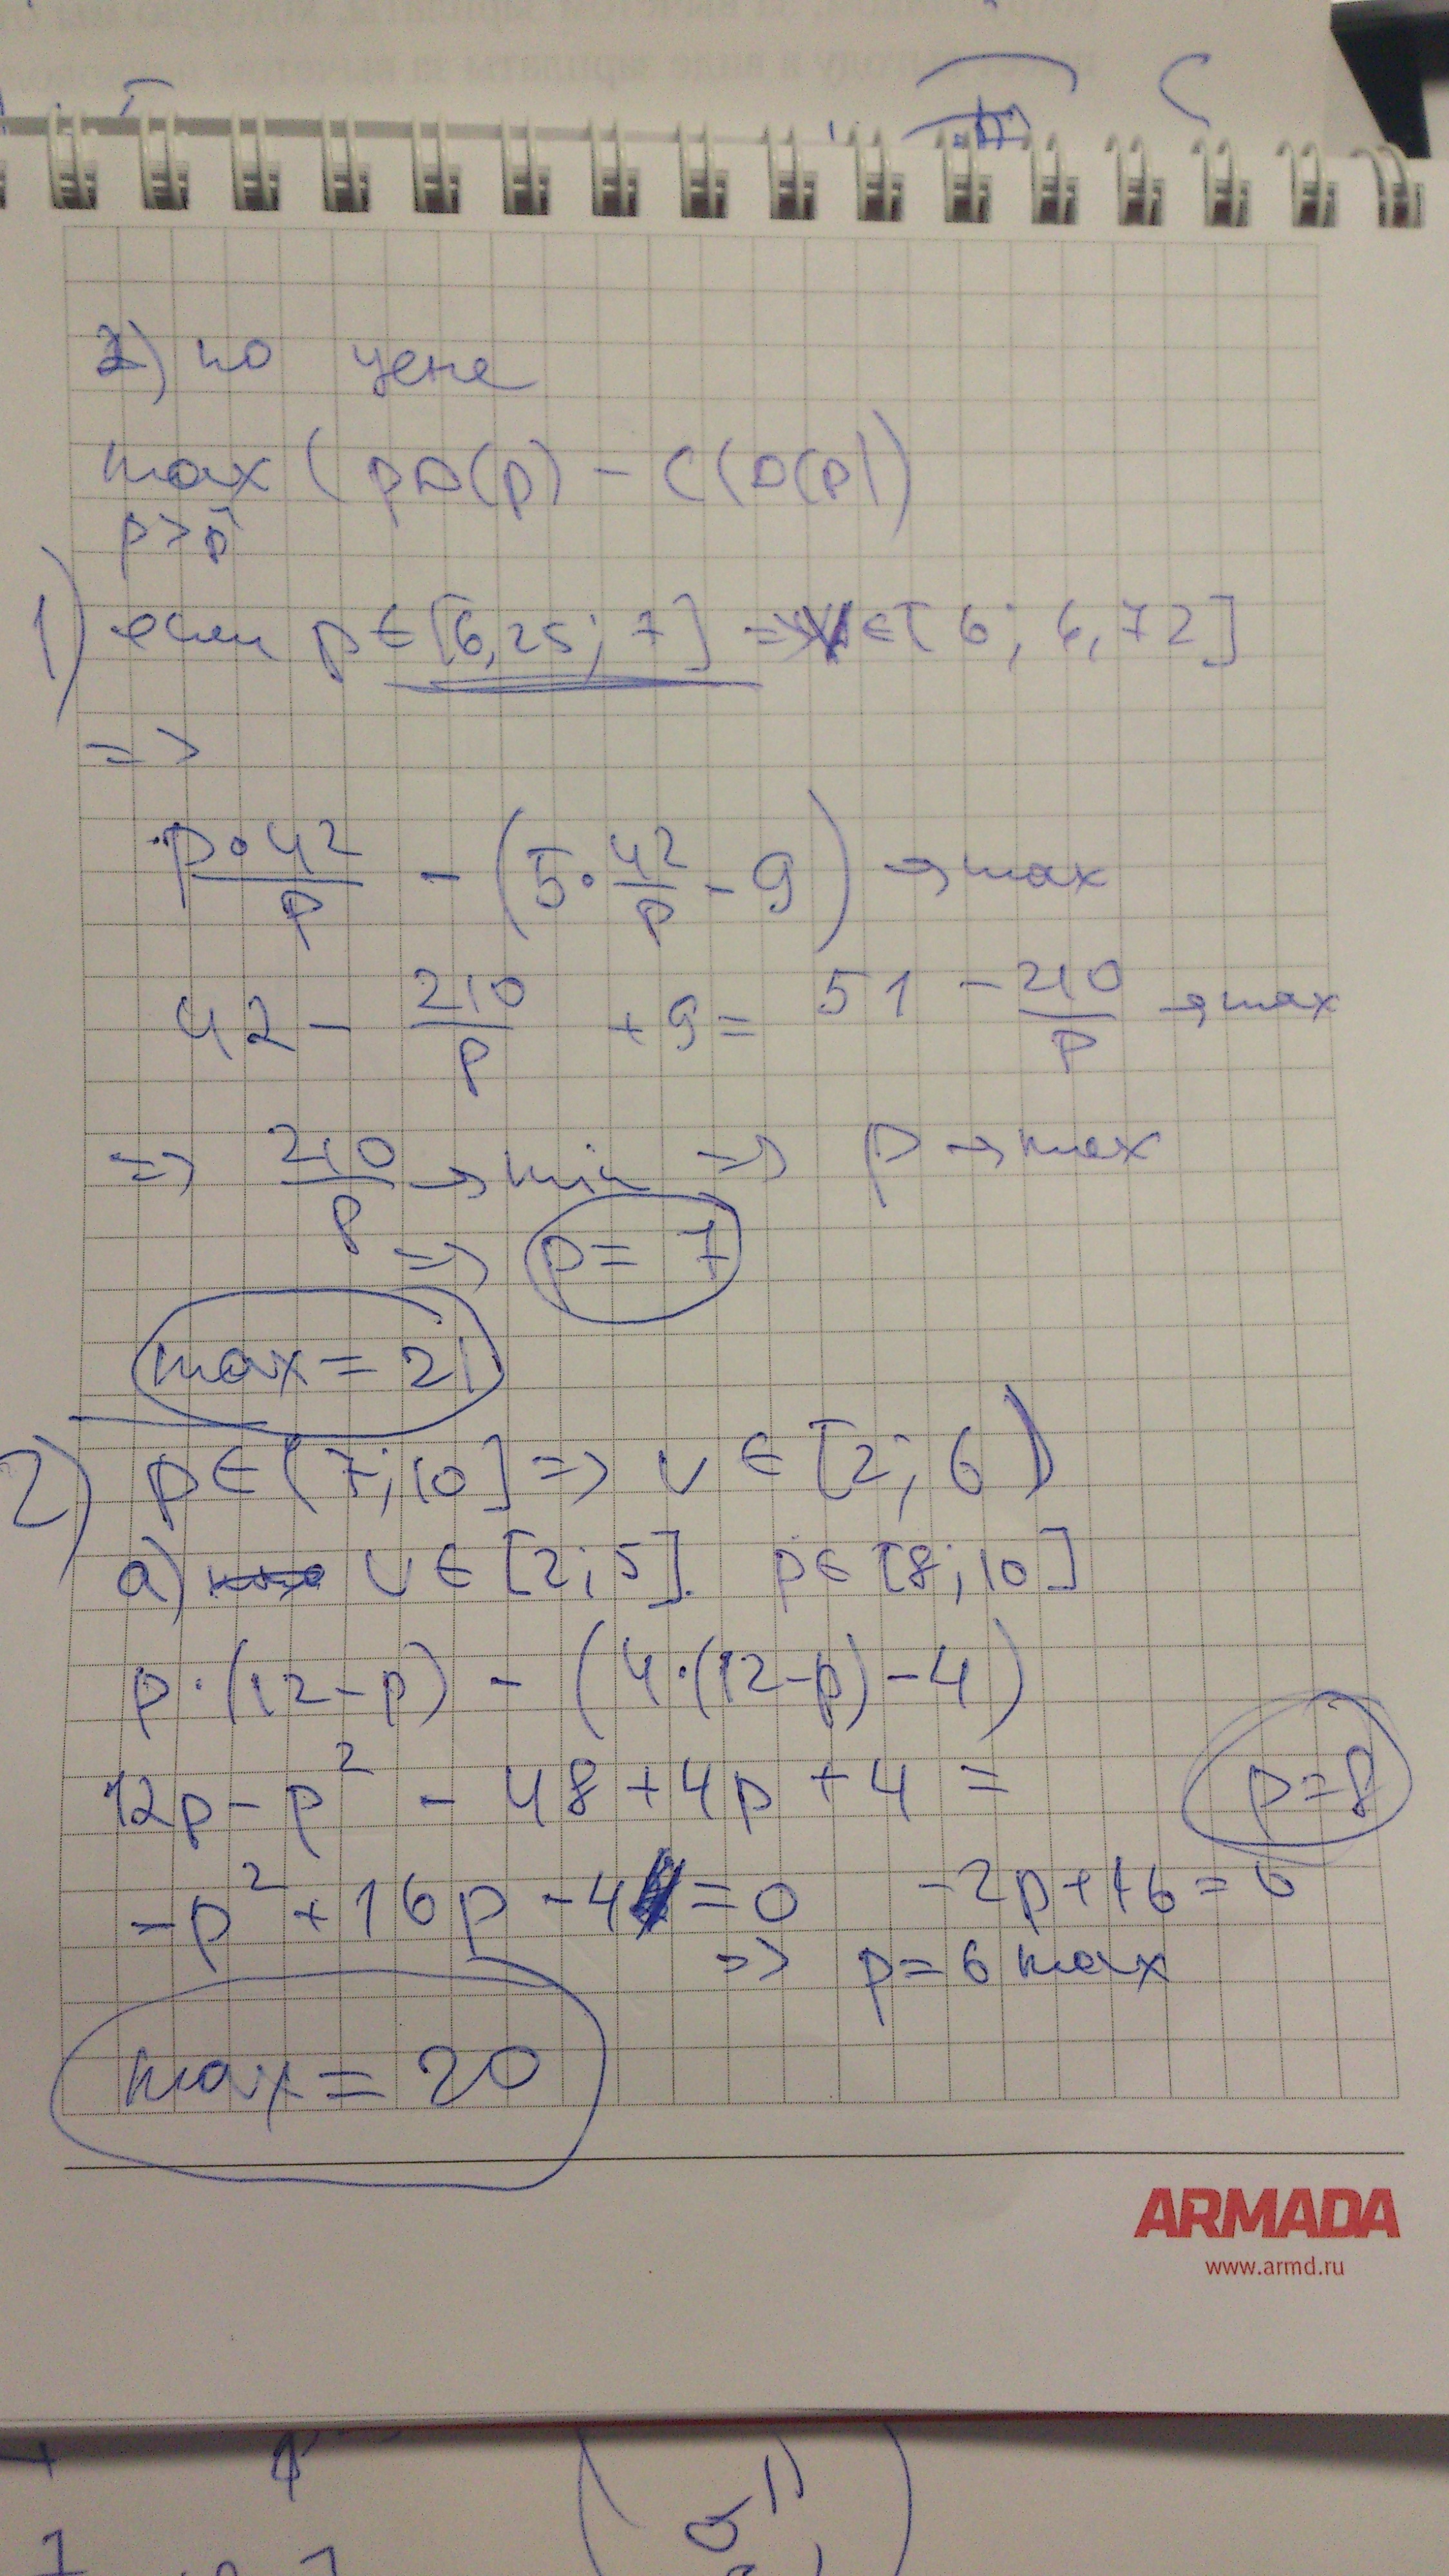 2) по цене
max (pD(p) - C(D(p))
p>p̄
1) если p∈[6,25; 7] => V∈[6; 6,72]
=>
p•42/p - (5•42/p - 9) → max
42 - 210/p + 9 = 51 - 210/p → max
=> 210/p → min => p → max
=> p = 7
max = 21
2) p∈(7;10] => V ∈ [2; 6)
a) V∈[2;5]. p∈[8;10]
p·(12-p) - (4·(12-p)-4)
12p - p² - 48 + 4p + 4 =
p=8
-p² + 16p - 4 = 0 -2p+16=0
=> p=6 max
max = 20
ARMADA
www.armd.ru